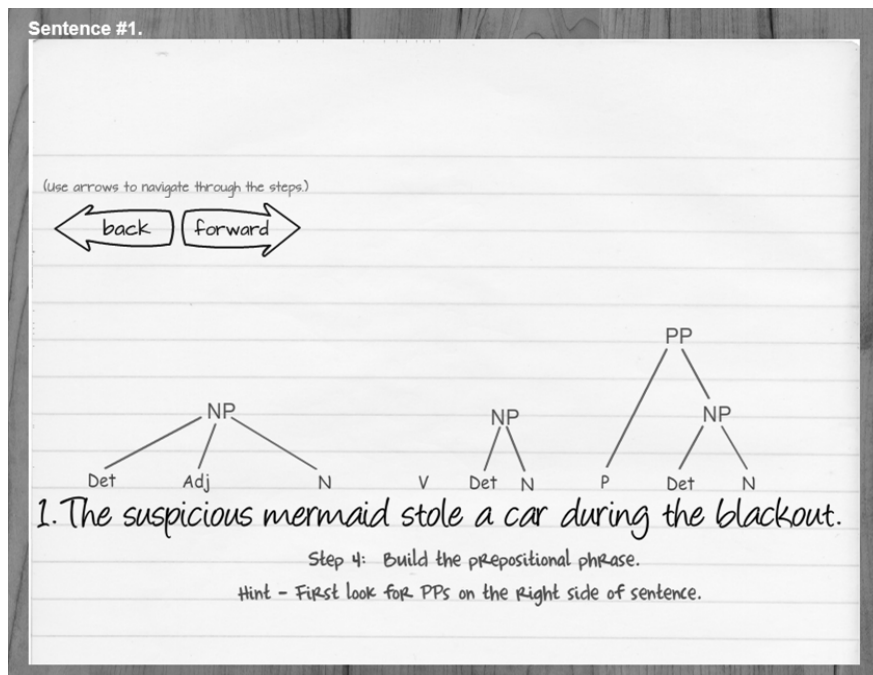 Sentence #1.
(Use arrows to navigate through the steps.)
back forward
PP
NP NP NP
Det Adj N V Det N P Det N
1. The suspicious mermaid stole a car during the blackout.
Step 4: Build the prepositional phrase.
Hint - First look for PPs on the right side of sentence.